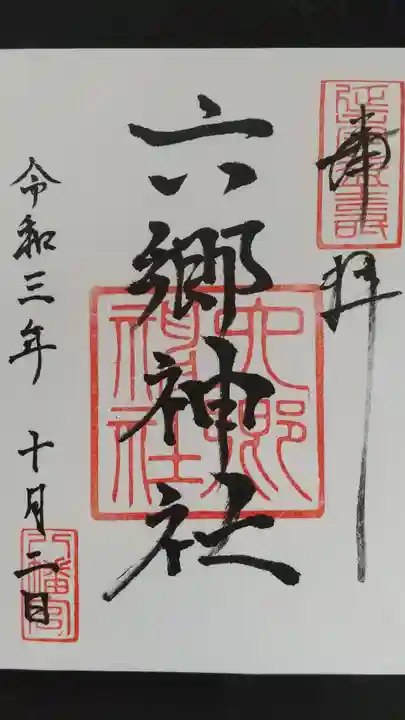 奉拝
六郷神社
六郷
神社
令和三年 十月二日
八幡宮